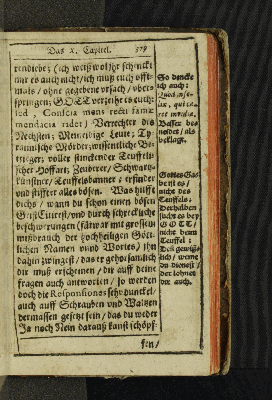 Das x. Capitel.
rendiebe; (ich weiß wol ihr schmeckt
mir es auch nicht / ich muß euch offt-
mals / ohne gegebene ursach / über-
springen; GOTT verzeihe es euch:
sed, Conscia mens recti famæ
mendacia ridet) Verrechter des
Nechsten; Meineidige Leute; Ty-
rannische Mörder; wissentliche Be-
trieger; voller stinckender Teuffeli-
scher Hoffart; Zeuberer / Schwartz-
künstner / Teuffelsbanner: erfindet
und stifftet alles bösen. Was hilffts
dichs / wann du schon einen bösen
Geist Citirest / und durch schreckliche
beschwerungen (fürwar mit grossem
mißbrauch der hochheiligen Gött-
lichen Namen unnd Wortes / ihn
dahin zwingest / das er gehorsamlich
dir muß erscheinen / dir auff deine
fragen auch antworten / so werden
doch die Responsiones sehr dunckel /
auch auff Schrauben und Waltzen
dermassen gesetzt sein / das du weder
Ja noch Nein darauß kanst schöpf-
fen /
So dencke
ich auch:
Besser be-
neidet / als
beklagt.
Gottes Ga-
be ist es /
nicht des
Teuffels;
Derhalben
suchs es bey
GOTT /
nicht beim
Teuffel:
du dienest /
der lohnet
dir auch.